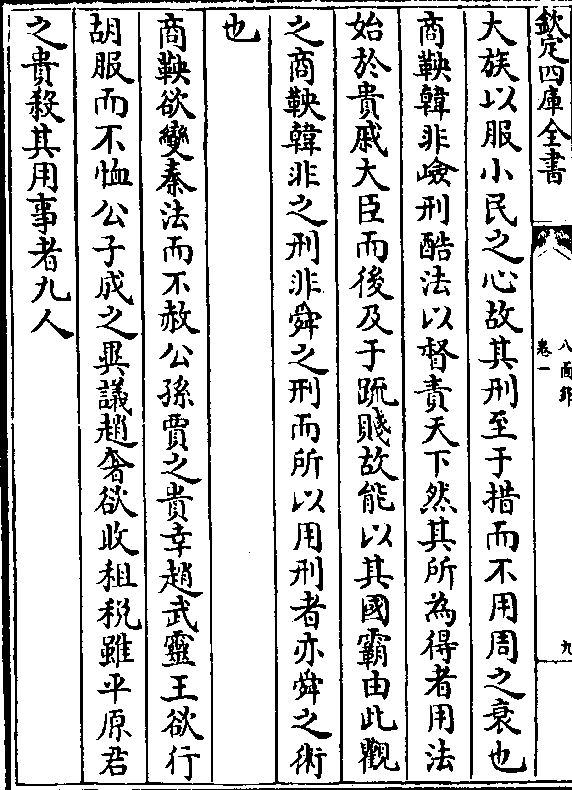 欽定四庫全書
八面鋒
卷一
九
大族以服小民之心故其刑至于措而不用周之衰也
商鞅韓非嶮刑酷法以督責天下然其所為得者用法
始於貴戚大臣而後及于疏賤故能以其國霸由此觀
之商鞅韓非之刑非舜之刑而所以用刑者亦舜之術
也
商鞅欲變秦法而不赦公孫賈之貴幸趙武靈王欲行
胡服而不恤公子成之異議趙奢欲收租稅雖平原君
之貴殺其用事者九人